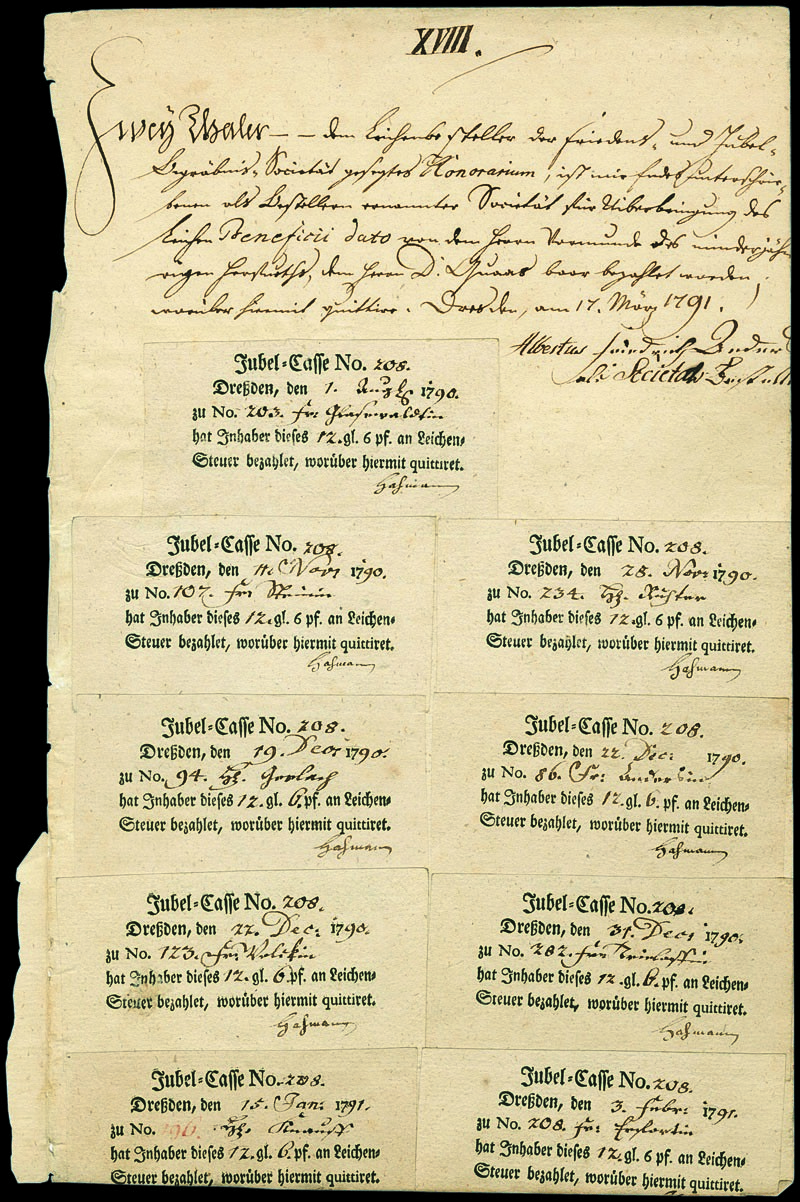 XVIII.
Zwey Thaler — — dem Leichenbesteller der Friedens- und Jubel-
Begräbnis-Societät gesetztes Honorarium, ist mir Endesunterschrie-
benen als Bestellern ernannter Societät für Uiberbringung des
Leichen Beneficii dato von dem Herrn Vormunde des minderjäh-
rigen, dem Herrn D. Quaas baar bezahlet worden,
worüber hiermit quittire. Dresden, am 17. März 1791.
Albertus Friedrich
als Societäts Bestell
Jubel-Casse No. 208.
Dreßden, den 1. Augs 1790.
zu No. 203. Fr: Glasewaldtin
hat Inhaber dieses 12. gl. 6 pf. an Leichen-
Steuer bezahlet, worüber hiermit quittiret.
Hahmann
Jubel-Casse No. 208.
Dreßden, den 11. Novr 1790.
zu No. 107. Fr:
hat Inhaber dieses 12. gl. 6 pf. an Leichen-
Steuer bezahlet, worüber hiermit quittiret.
Hahmann
Jubel-Casse No. 208.
Dreßden, den 28. Nov: 1790.
zu No. 234. H. Richter
hat Inhaber dieses 12. gl. 6 pf. an Leichen-
Steuer bezahlet, worüber hiermit quittiret.
Hahmann
Jubel-Casse No. 208.
Dreßden, den 19. Decr 1790.
zu No. 94. H. Gerlach
hat Inhaber dieses 12. gl. 6. pf. an Leichen-
Steuer bezahlet, worüber hiermit quittiret.
Hahmann
Jubel-Casse No. 208.
Dreßden, den 22. Dec: 1790.
zu No. 86. Fr: Andersin
hat Inhaber dieses 12. gl. 6. pf. an Leichen-
Steuer bezahlet, worüber hiermit quittiret.
Hahmann
Jubel-Casse No. 208.
Dreßden, den 22. Dec: 1790.
zu No. 123. Fr:
hat Inhaber dieses 12. gl. 6. pf. an Leichen-
Steuer bezahlet, worüber hiermit quittiret.
Hahmann
Jubel-Casse No. 208.
Dreßden, den 31. Decr 1790.
zu No. 282. Fr:
hat Inhaber dieses 12. gl. 6. pf. an Leichen-
Steuer bezahlet, worüber hiermit quittiret.
Hahmann
Jubel-Casse No. 208.
Dreßden, den 15. Jan: 1791.
zu No. 196. H. Knauff
hat Inhaber dieses 12. gl. 6. pf. an Leichen-
Steuer bezahlet, worüber hiermit quittiret.
Jubel-Casse No. 208.
Dreßden, den 3. Febr: 1791.
zu No. 208. Fr:
hat Inhaber dieses 12. gl. 6 pf. an Leichen-
Steuer bezahlet, worüber hiermit quittiret.